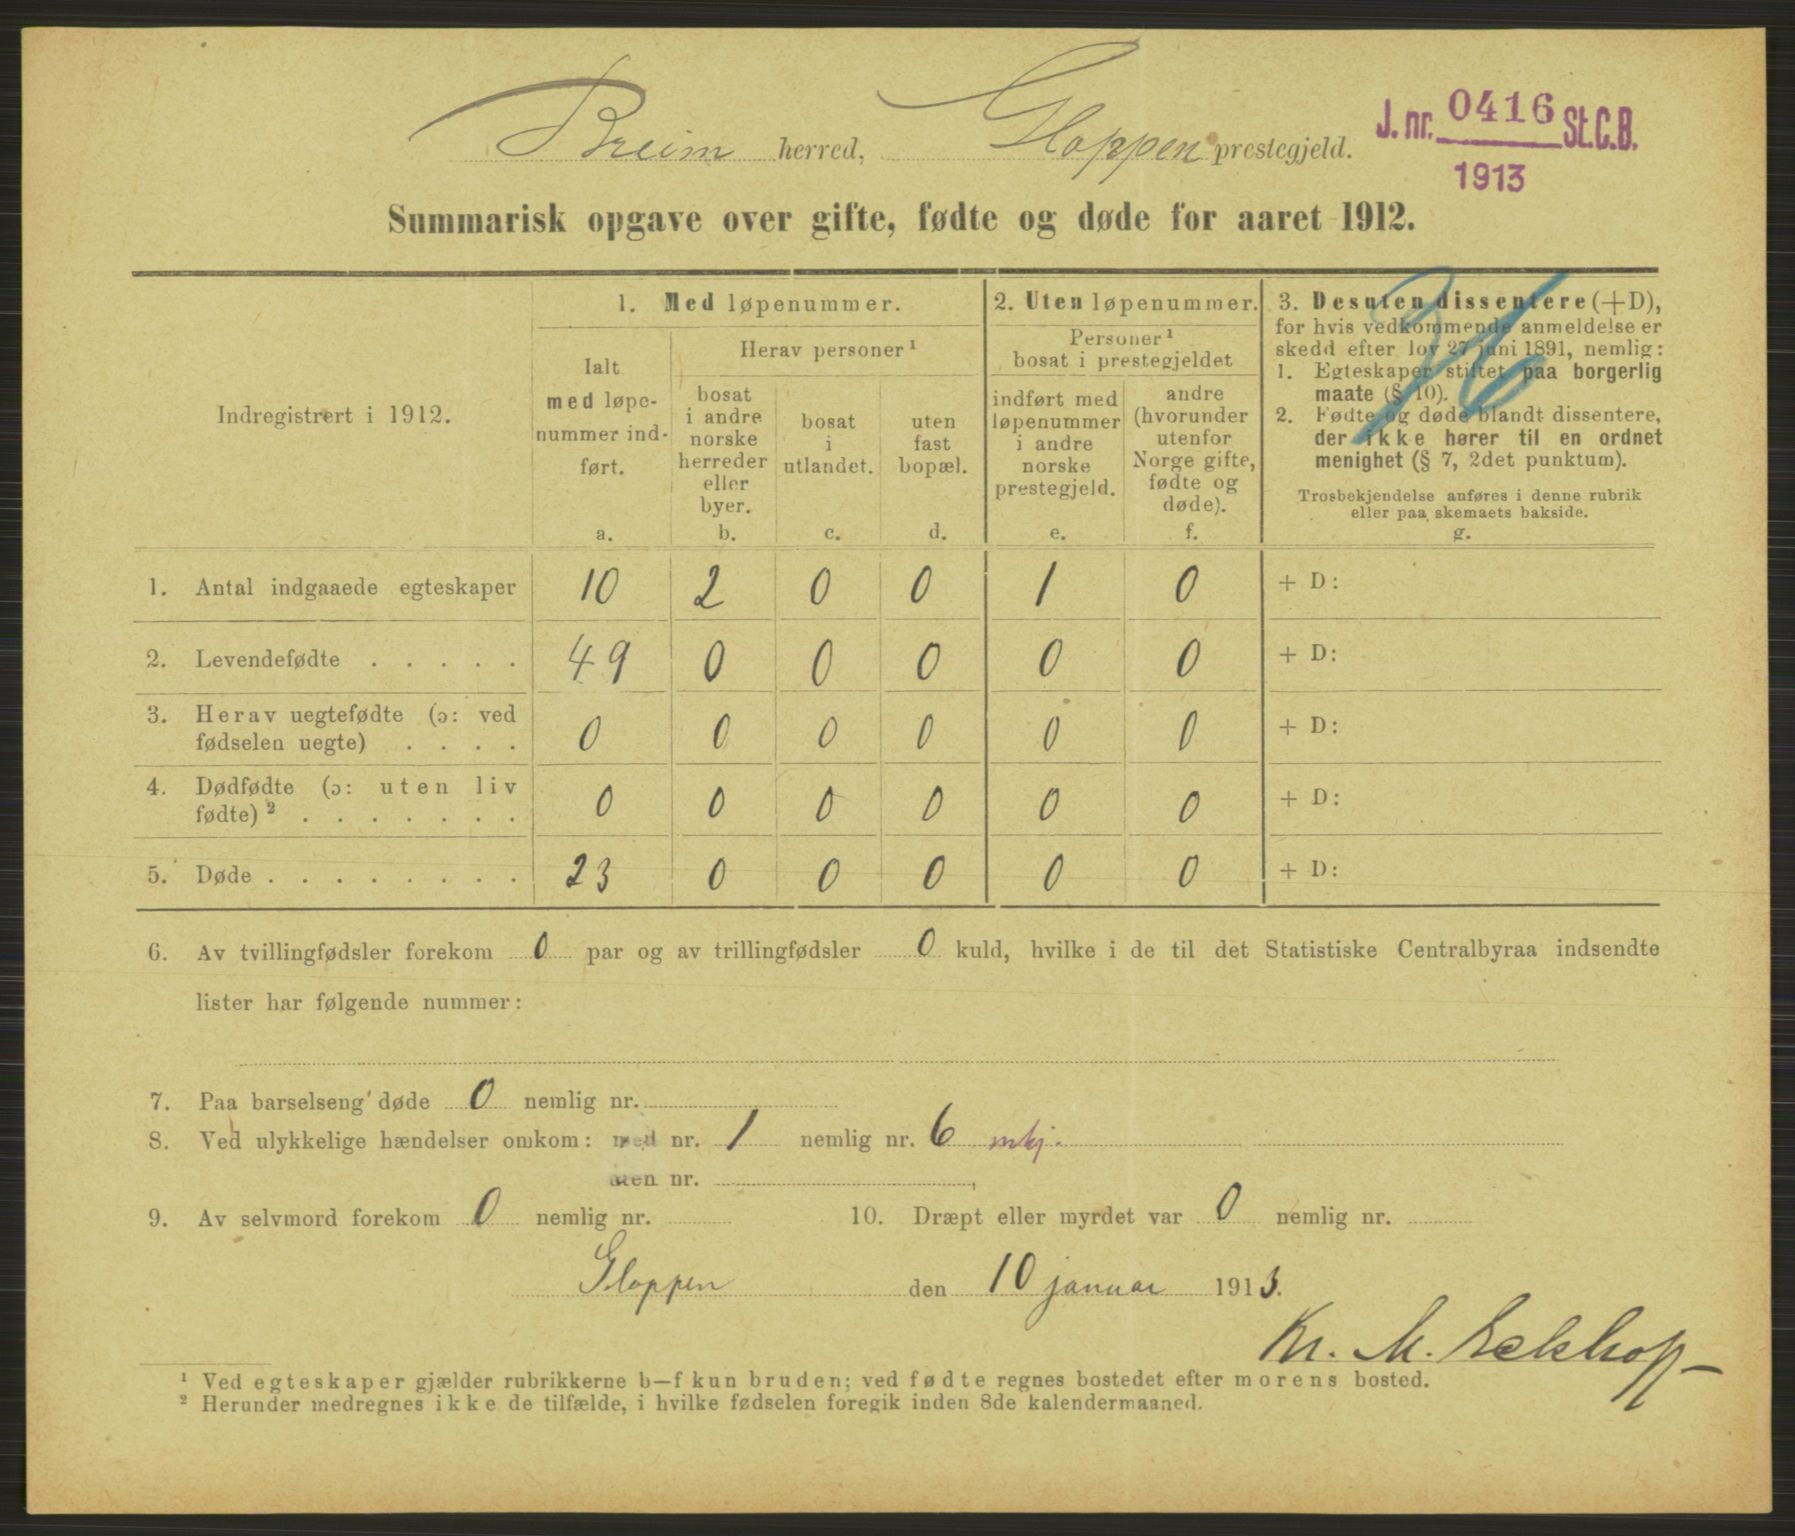 Breim herred, Gloppen prestegjeld.
J. nr. 0416 St.C.B.
1913
Summarisk opgave over gifte, fødte og døde for aaret 1912.
Indregistrert i 1912.
1. Med løpenummer.
Ialt
med løpe-
nummer ind-
ført.
a.
Herav personer ¹
bosat
i andre
norske
herreder
eller
byer.
b.
bosat
i
utlandet.
c.
uten
fast
bopæl.
d.
2. Uten løpenummer.
Personer ¹
bosat i prestegjeldet
indført med
løpenummer
i andre
norske
prestegjeld.
e.
andre
(hvorunder
utenfor
Norge gifte,
fødte og
døde).
f.
3. Desuten dissentere (+D),
for hvis vedkommende anmeldelse er
skedd efter lov 27 juni 1891, nemlig:
1. Egteskaper stiftet paa borgerlig
maate (§ 10).
2. Fødte og døde blandt dissentere,
der ikke hører til en ordnet
menighet (§ 7, 2det punktum).
Trosbekjendelse anføres i denne rubrik
eller paa skemaets bakside.
g.
1. Antal indgaaede egteskaper 10 2 0 0 1 0 + D:
2. Levendefødte . . . . . 49 0 0 0 0 0 + D:
3. Herav uegtefødte (ɔ: ved
fødselen uegte) . . . . 0 0 0 0 0 0 + D:
4. Dødfødte (ɔ: uten liv
fødte) ² . . . . . . . 0 0 0 0 0 0 + D:
5. Døde . . . . . . . . 23 0 0 0 0 0 + D:
6. Av tvillingfødsler forekom 0 par og av trillingfødsler 0 kuld, hvilke i de til det Statistiske Centralbyraa indsendte
lister har følgende nummer:
7. Paa barselseng døde 0 nemlig nr.
8. Ved ulykkelige hændelser omkom: med nr. 1 nemlig nr. 6 mkj.
uten nr.
9. Av selvmord forekom 0 nemlig nr.
10. Dræpt eller myrdet var 0 nemlig nr.
Gloppen den 10 januar 1913.
Kr. M. Eckhoff
¹ Ved egteskaper gjælder rubrikkerne b—f kun bruden; ved fødte regnes bostedet efter morens bosted.
² Herunder medregnes ikke de tilfælde, i hvilke fødselen foregik inden 8de kalendermaaned.